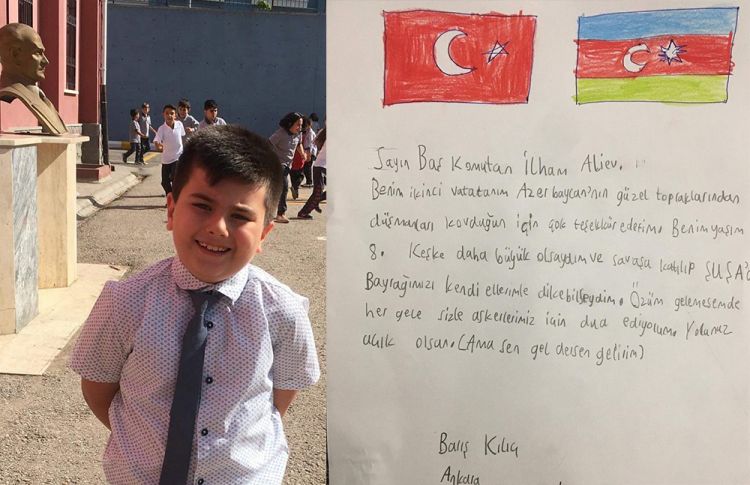 Sayın Baş Komutan İlham Aliev.
Benim ikinci vatatanım Azerbaycan'nın güzel topraklarından
düşmanları kovduğun için çok teşekkür ederim. Benim yaşım
8. Keşke daha büyük olsaydım ve savaşa katılıp ŞUŞA'
Bayrağımızı kendi ellerimle dikebilseydim. Özüm gelemesemde
her gece sizle askerlerimiz için dua ediyorum. Yolunuz
açık olsun. (Ama sen gel dersen gelirim)
Barış Kılıç
Ankara